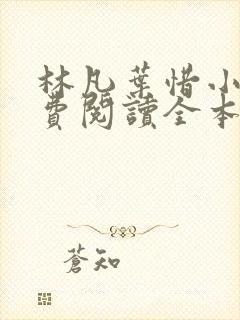 林凡葉惜小
費閱讀全本
蒼知